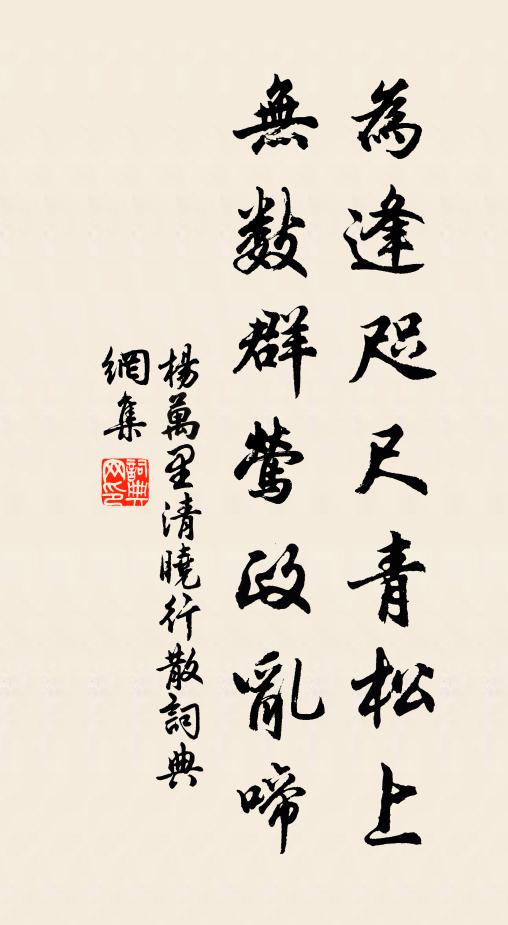 為逢咫尺青松上
無數群鶯政亂啼
楊萬里清曉行散詞典
網集
詞典網印